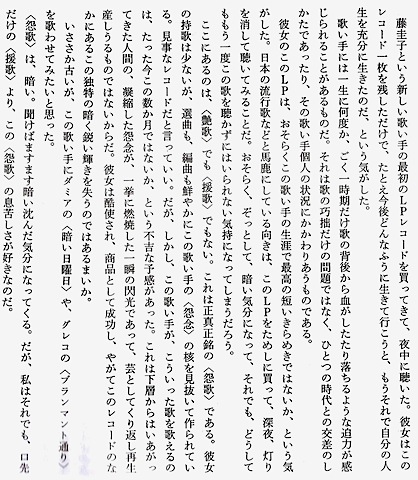 藤圭子という新しい歌い手の最初のLPレコードを買ってきて、夜中に聴いた。彼女はこの
レコード一枚を残しただけで、たとえ今後どんなふうに生きて行こうと、もうそれで自分の人
生を充分に生きたのだ、という気がした。
歌い手には一生に何度か、ごく一時期だけ歌の背後から血がしたたり落ちるような迫力が感
じられることがあるものだ。それは歌の巧拙だけの問題ではなく、ひとつの時代との交差のし
かたであったり、その歌い手個人の状況にかかわりあうものである。
彼女のこのLPは、おそらくこの歌い手の生涯で最高の短いきらめきではないか、という気
がした。日本の流行歌などと馬鹿にしている向きは、このLPをためしに買って、深夜、灯り
を消して聴いてみることだ。おそらく、ぞっとして、暗い気分になって、それでも、どうして
ももう一度この歌を聴かずにはいられない気持になってしまうだろう。
ここにあるのは、〈艶歌〉でも〈援歌〉でもない。これは正真正銘の〈怨歌〉である。彼女
の持歌は少ないが、選曲も、編曲も鮮やかにこの歌い手の〈怨念〉の核を見抜いて作られてい
る。見事なレコードだと言っていい。だが、しかし、この歌い手が、こういった歌を歌えるの
は、たった今この数か月ではないか、という不吉な予感があった。これは下層からはいあがっ
てきた人間の、凝縮した怨念が、一挙に燃焼した一瞬の閃光であって、芸としてくり返し再生
産しうるものではないからだ。彼女は酷使され、商品として成功し、やがてこのレコードのな
かにあるこの独特の暗く鋭い輝きを失うのではあるまいか。
いささか古いが、この歌い手にダミアの〈暗い日曜日〉や、グレコの〈ブランマント通り〉
を歌わせてみたいと思った。
〈怨歌〉は、暗い。聞けばますます暗い沈んだ気分になってくる。だが、私はそれでも、口先
だけの〈援歌〉より、この〈怨歌〉の息苦しさが好きなのだ。